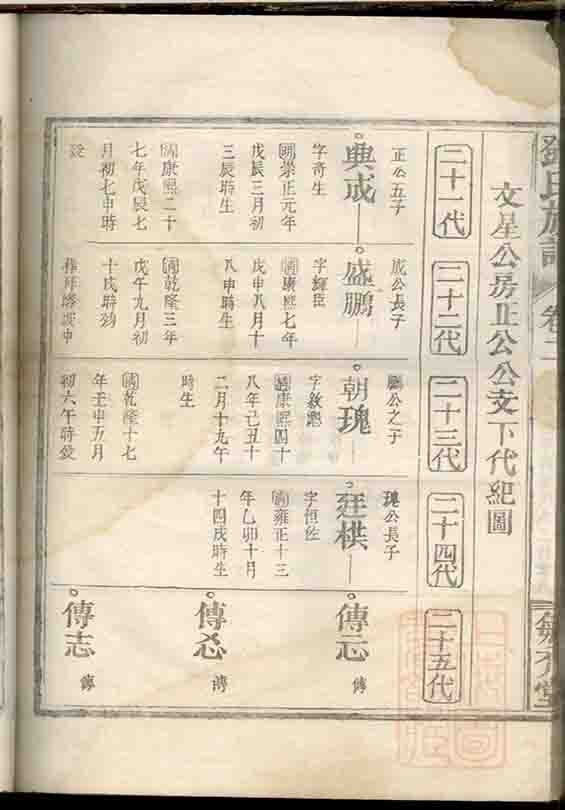 氏族譜
卷二
文星公房正公公支下代紀圖
二十一代
二十二代
二十三代
二十四代
二十五代
正公五子
典成
字奇生
明崇正元年
戊辰三月初
三辰時生
清康熙二十
七年戊辰七
月初七申時
歿
成公長子
盛鵬
字輝臣
清康熙七年
戊申八月十
八申時生
清乾隆三年
戊午九月初
十戌時歿
鵬公之子
朝瑰
字敘熙
清康熙四十
八年己丑十
二月十九午
時生
清乾隆十七
年壬申五月
初六午時歿
瑰公長子
廷棋
字恒佐
清雍正十三
年乙卯十月
十四戌時生
傳
傳
傳志
傳